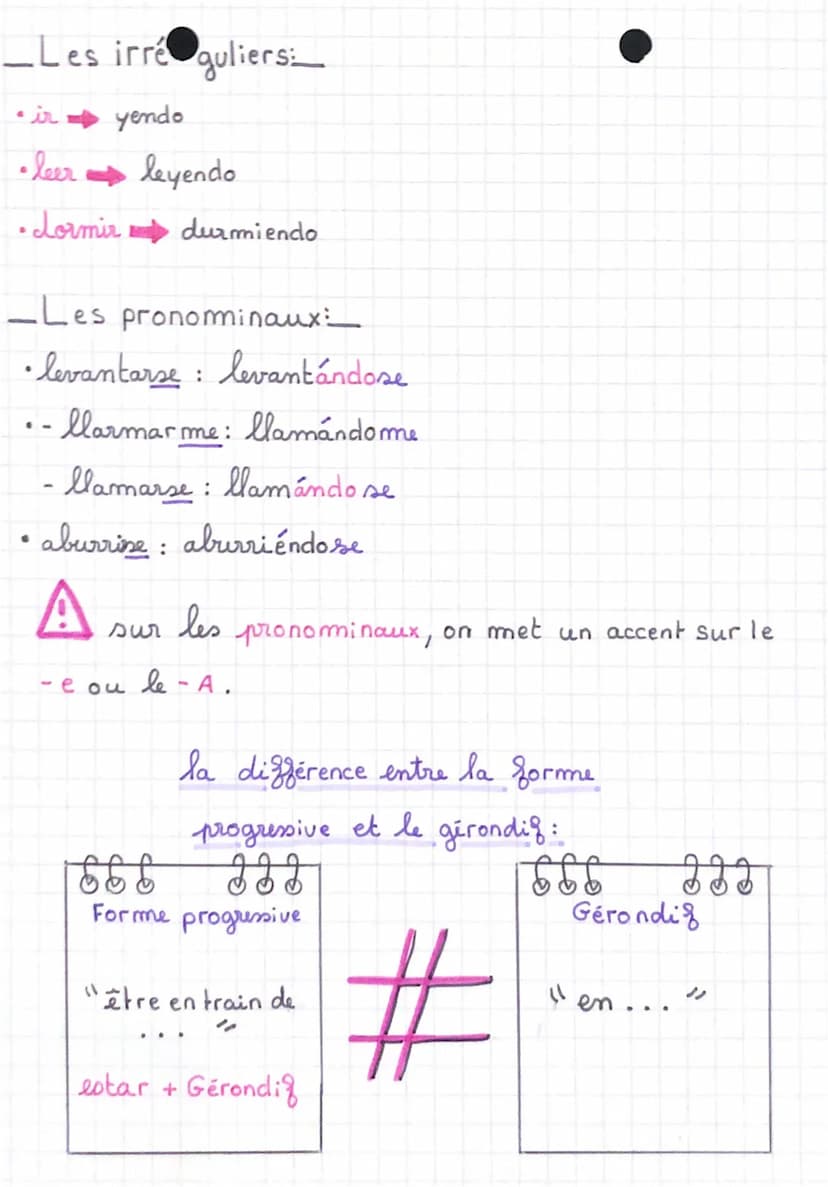 Les irréguliers:
• ir → yendo
• leer → leyendo
• dormir → durmiendo
Les pronominaux:
• levantarse : levantándose
• - llarmarme : llamándome
- llamarse : llamándose
• aburrirse : aburriéndose
sur les pronominaux, on met un accent sur le
-e ou le -A.
la différence entre la forme
progressive et le gérondif :
Forme progressive
"être en train de
... "
estar + Gérondif
Gérondif
" en ... "